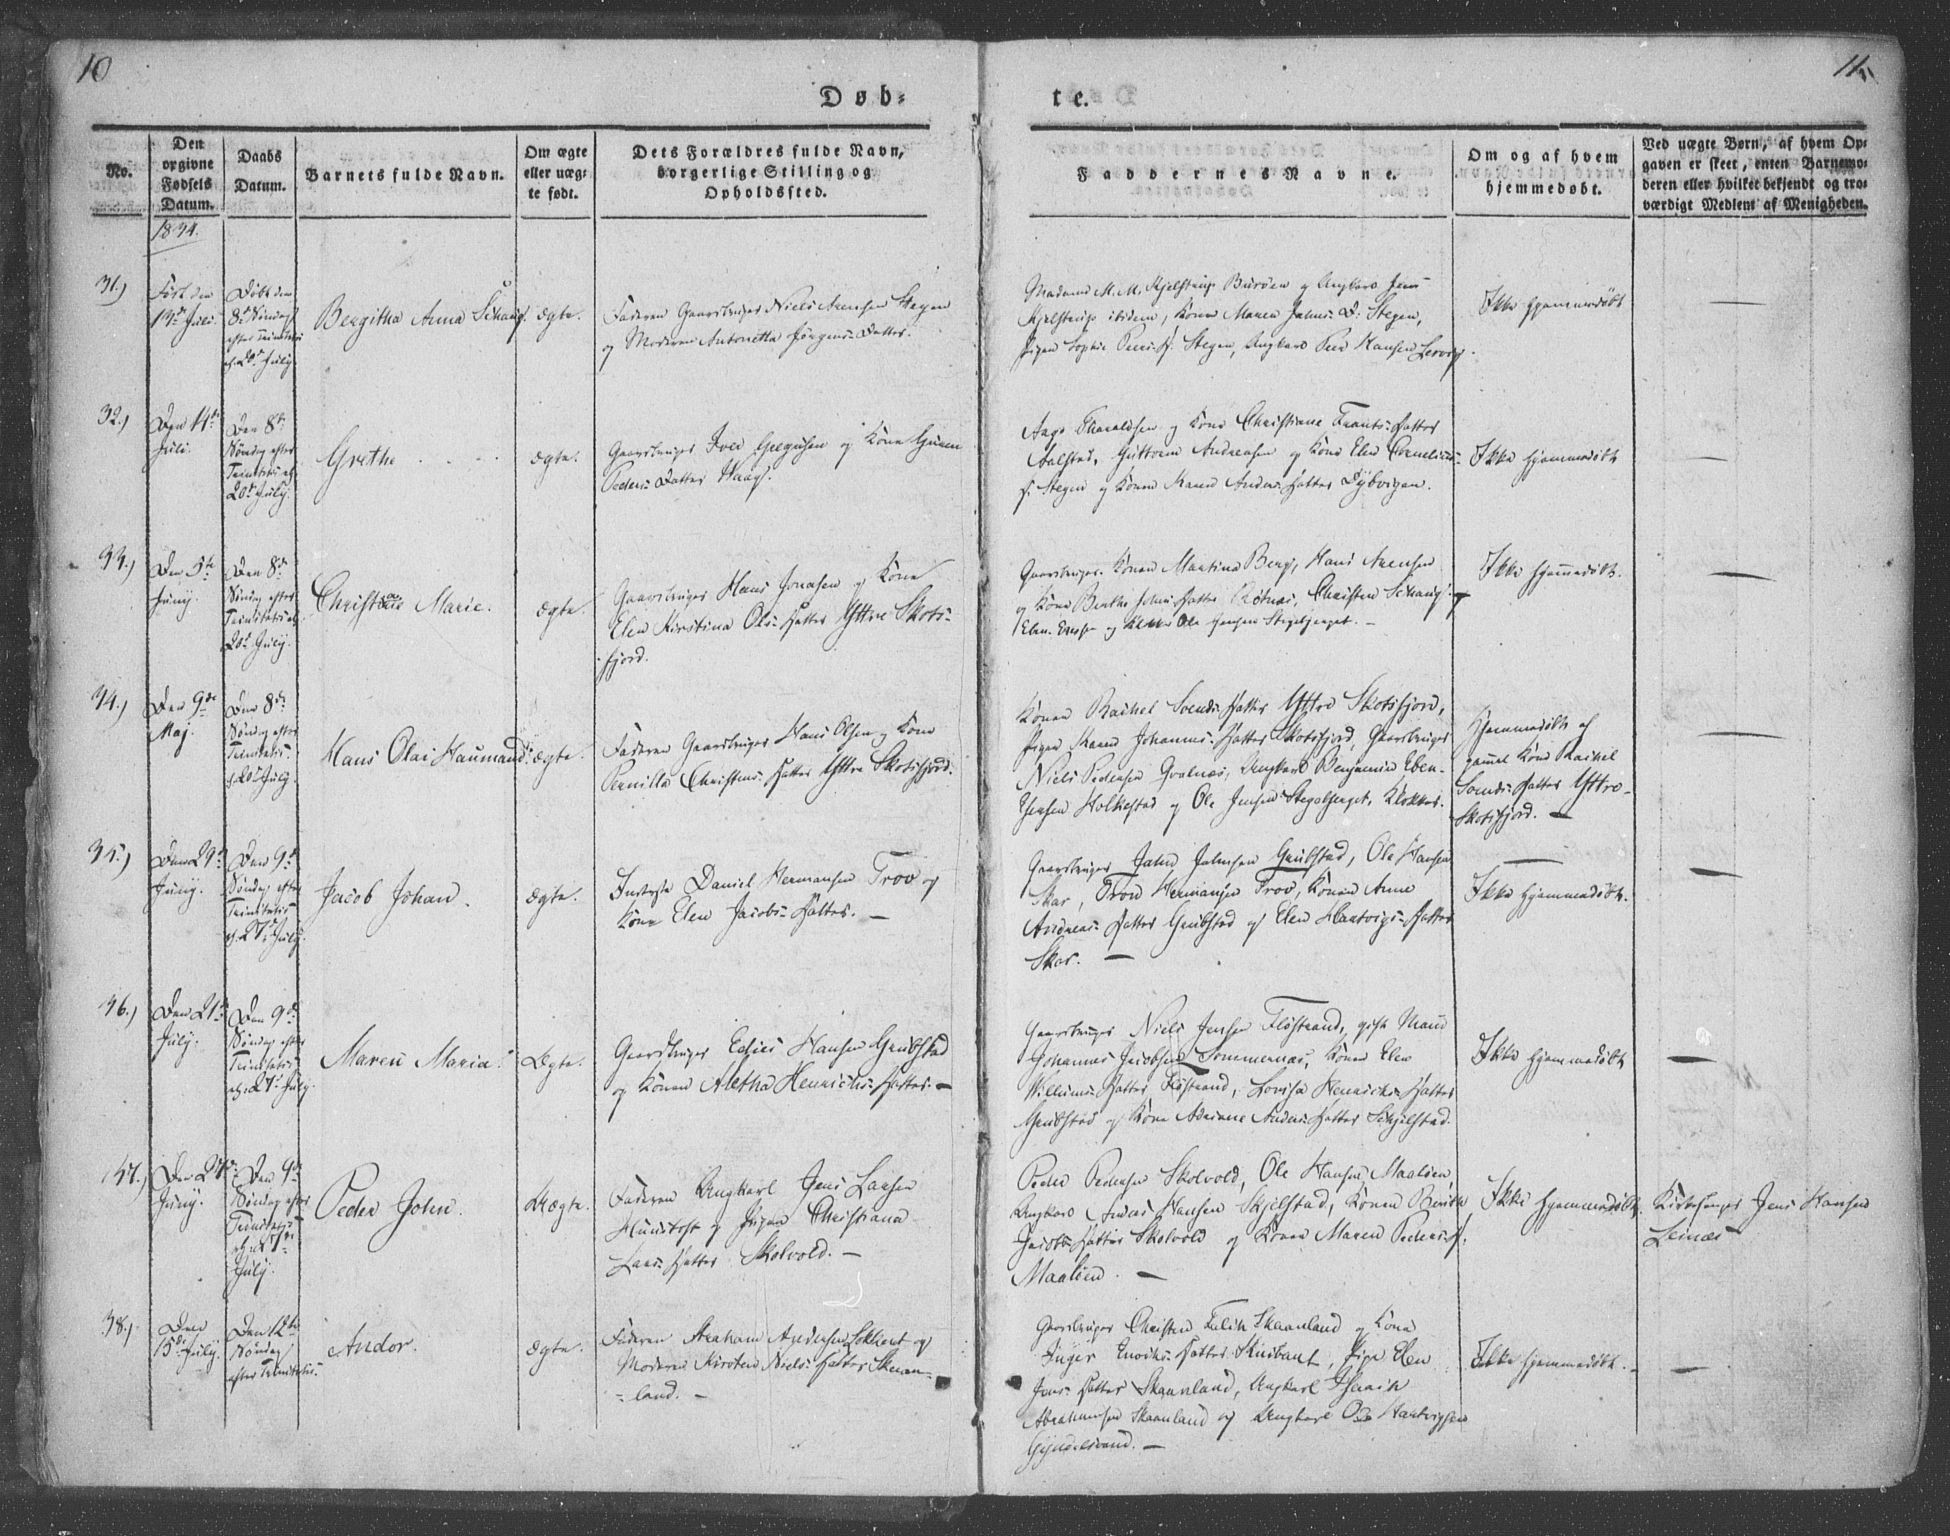 10
11.
Døb-
te.
No.
Den
opgivne
Fødsels
Datum.
Daabs
Datum.
Barnets fulde Navn.
Om ægte
eller uæg-
te født.
Dets Forældres fulde Navn,
borgerlige Stilling og
Opholdssted.
Faddernes Navne.
Om og af hvem
hjemmedøbt.
Ved uægte Børn, af hvem Op-
gaven er skeet, enten Barnemo-
deren eller hvilket bekjendt og tro-
værdigt Medlem af Menigheden.
1834.
31.)
Født den
13de Juli.
Døbt den
8de Søndag
efter Trinitatis
d. 20de July.
Bergitha Anna Schaug.
ægte.
Faderen Gaardbruger Niels Arentsen Stegen
og Moderen Antonetta Jörgens Datter.
Madame M. M. Kjelstrup Buröen og Ungkarl Jens
Kjelstrup ibidem, Konen Maren Jahns D. Stegen,
Pigen Sophie Peders D. Stegen, Ungkarl Peder Hansen
Ikke hjemmedöbt
32.)
Den 14de
Juli.
Den 8de
Søndag efter
Trinitatis d.
20de July.
Grethe
ægte.
Gaardbruger Iver Gregusen og Kone Guren
Peders Datter Haug.
Aage Tharaldsen og Kone Christiane Frants Datter
Aalstad, Guttorm Andreasen og Kone Elen Cornelius
D. Stegen og Konen Maren Anders Datter Dybvigen.
Ikke hjemmedöbt
33.)
Den 5te
Juny.
Den 8de
Søndag efter
Trinitatis d.
20de July.
Christiane Marie.
ægte.
Gaardbruger Hans Jonasen og Kone
Elen Kirstina Ols Datter Yttre Skots-
fjord.
Gaardbruger Konen Martina Berg, Hans Arentsen
og Kone Berthe Johns Datter Röttnæs, Christen Schaug
og Ole Jensen Stegebjerget.
Ikke hjemmedöbt.
34.)
Den 9de
Maj.
Den 8de
Søndag efter
Trinitatis
d. 20de July.
Hans Olai Haumand.
ægte.
Faderen Gaardbruger Hans Olsen og Kone
Pernilla Christens Datter Yttre Skotsfjord.
Konen Rachel Svends Datter Yttre Skotsfjord,
Pigen Maren Johannes Datter Skotsfjord, Gaardbruger
Niels Pedersen Qvalnæs, Ungkarl Benjamin Eben-
Ezersen Holkestad og Ole Jensen Stegebjerget, Klokker.
Hjemmedöbt af
gammel Kone Rachel
Svends Datter Yttre-
Skotsfjord.
35.)
Den 29de
Juny.
Den 9de
Søndag efter
Trinitatis
d. 27de July.
Jacob Johan.
ægte.
Inderste Daniel Hermansen Trov og
Kone Elen Jacobs Datter.
Gaardbruger Jahn Jahnsen Grubstad, Ole Hansen
Skar, Tron Hermansen Trov, Konen Anne
Andreas Datter Grubstad og Elen Hartvigs Datter
Skar.
Ikke hjemmedöbt.
36.)
Den 21de
July.
Den 9de
Søndag efter
Trinitatis
d. 27de July.
Maren Maria.
Ægte.
Gaardbruger Edzies Hansen Grubstad
og Konen Aletha Henrichs Datter.
Gaardbruger Niels Jensen Flöstrand, gift Mand
Johannes Jacobsen Sommernæs, Konen Elen
Willums Datter Flöstrand, Lovisa Henrichs Datter
Grubstad og Kone Adriane Anders Datter Schjelstad.
Ikke hjemmedöbt
37.)
Den 27de
Juny.
Den 9de
Søndag efter
Trinitatis
d. 27de
July.
Peder John.
Uægte.
Faderen Ungkarl Jens Larsen
Hundtoft og Pigen Christiana
Lars Datter Skolvold.
Peder Pedersen Skolvold, Ole Hansen Maalöen,
Ungkarl Anders Hansen Skjelstad, Konen Berith
Jacobs Datter Skolvold og Konen Maren Peders D.
Maalöen.
Ikke hjemmedöbt.
Kirkesanger Jens Hansen
Leinæs
38.)
Den
15de July.
Den 12te
Søndag
efter Trinitatis.
Andor.
ægte.
Faderen Abraham Andersen og
Moderen Kirsten Niels Datter Skaan-
land.
Gaardbruger Christen Falch Skaanland og Kone
Inger Enochs Datter, Pige Elen
Jens Datter Skaanland, Ungkarl
Abrahamsen Skaanland og Ungkarl Ole Hartvigsen
Ikke hjemmedöbt.